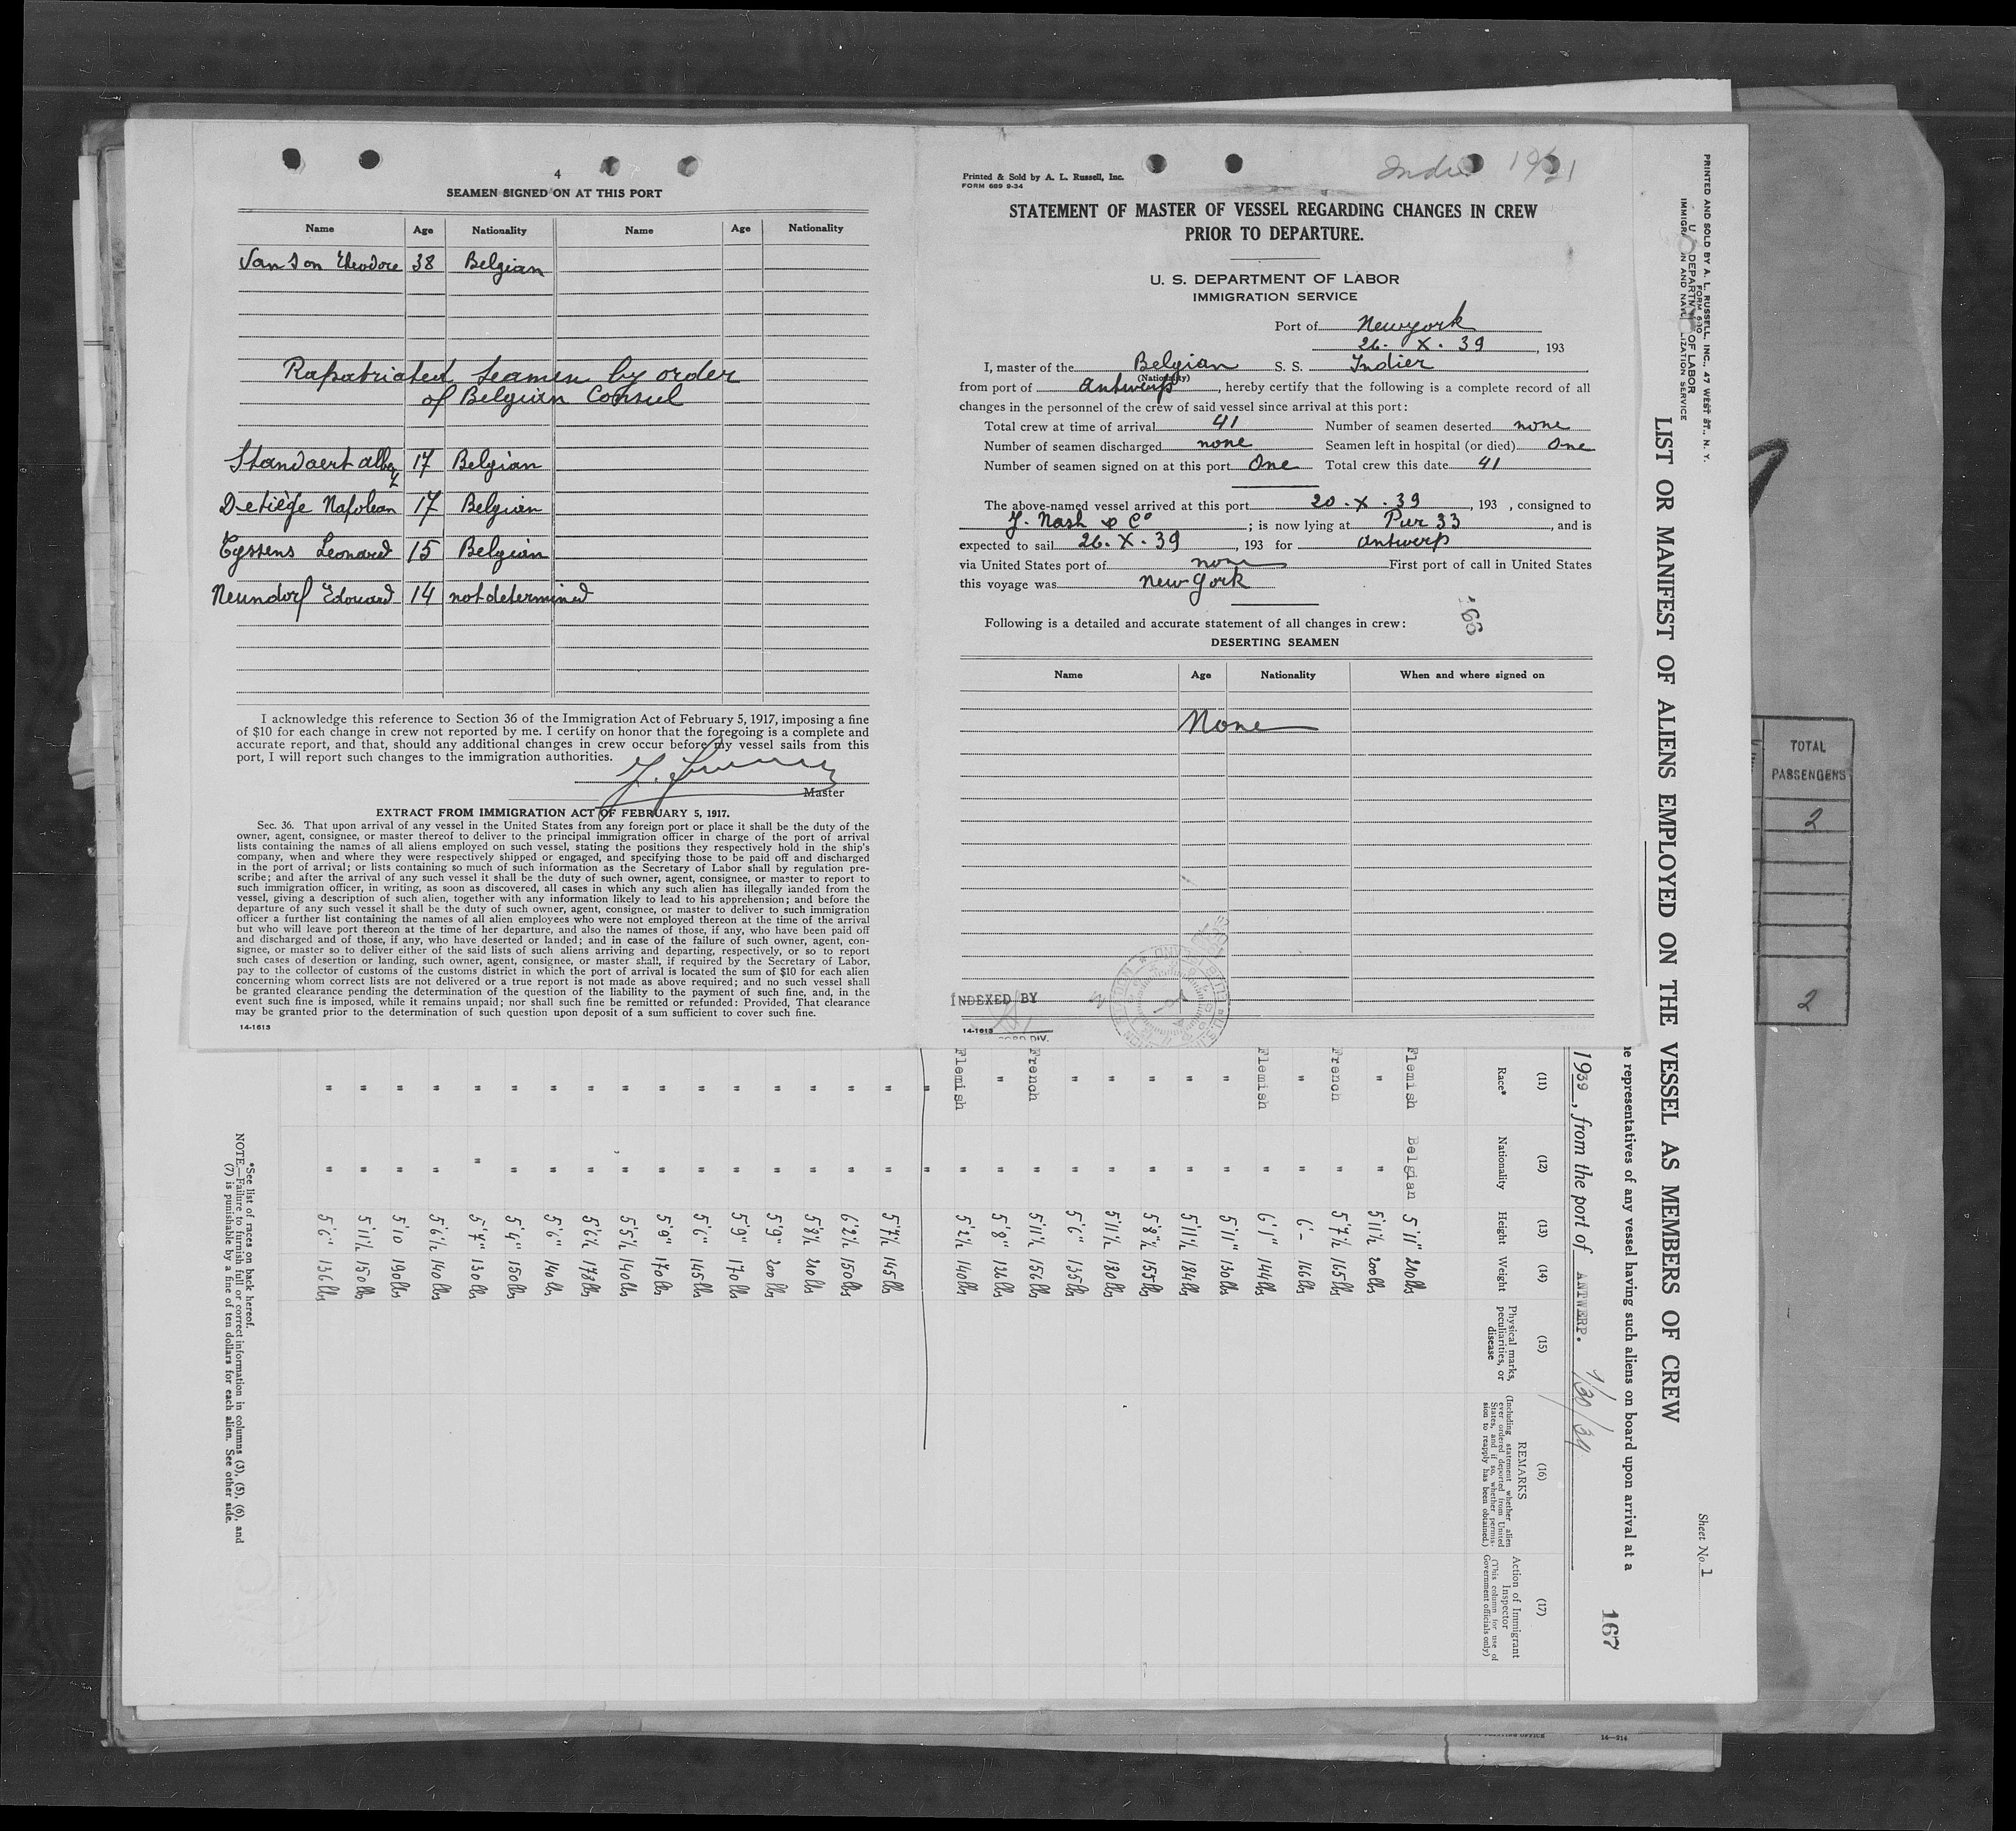 4
SEAMEN SIGNED ON AT THIS PORT
Name Age Nationality Name Age Nationality
Van Son Theodore 38 Belgian
Rapatriated seamen by order
of Belgian Consul
Standaert 17 Belgian
Detiège Napoléon 17 Belgian
Eyssens Leonard 15 Belgian
Neundorf Edouard 14 not determined
I acknowledge this reference to Section 36 of the Immigration Act of February 5, 1917, imposing a fine
of $10 for each change in crew not reported by me. I certify on honor that the foregoing is a complete and
accurate report, and that, should any additional changes in crew occur before my vessel sails from this
port, I will report such changes to the immigration authorities.
Master
EXTRACT FROM IMMIGRATION ACT OF FEBRUARY 5, 1917.
Sec. 36. That upon arrival of any vessel in the United States from any foreign port or place it shall be the duty of the
owner, agent, consignee, or master thereof to deliver to the principal immigration officer in charge of the port of arrival
lists containing the names of all aliens employed on such vessel, stating the positions they respectively hold in the ship's
company, when and where they were respectively shipped or engaged, and specifying those to be paid off and discharged
in the port of arrival; or lists containing so much of such information as the Secretary of Labor shall by regulation pre-
scribe; and after the arrival of any such vessel it shall be the duty of such owner, agent, consignee, or master to report to
such immigration officer, in writing, as soon as discovered, all cases in which any such alien has illegally landed from the
vessel, giving a description of such alien, together with any information likely to lead to his apprehension; and before the
departure of any such vessel it shall be the duty of such owner, agent, consignee, or master to deliver to such immigration
officer a further list containing the names of all alien employees who were not employed thereon at the time of the arrival
but who will leave port thereon at the time of her departure, and also the names of those, if any, who have been paid off
and discharged and of those, if any, who have deserted or landed; and in case of the failure of such owner, agent, con-
signee, or master so to deliver either of the said lists of such aliens arriving and departing, respectively, or so to report
such cases of desertion or landing, such owner, agent, consignee, or master shall, if required by the Secretary of Labor,
pay to the collector of customs of the customs district in which the port of arrival is located the sum of $10 for each alien
concerning whom correct lists are not delivered or a true report is not made as above required; and no such vessel shall
be granted clearance pending the determination of the question of the liability to the payment of such fine, and, in the
event such fine is imposed, while it remains unpaid; nor shall such fine be remitted or refunded: Provided, That clearance
may be granted prior to the determination of such question upon deposit of a sum sufficient to cover such fine.
14-1613
Printed & Sold by A. L. Russell, Inc.
FORM 689 9-34
STATEMENT OF MASTER OF VESSEL REGARDING CHANGES IN CREW
PRIOR TO DEPARTURE.
U. S. DEPARTMENT OF LABOR
IMMIGRATION SERVICE
Port of Newyork
26. X. 39, 193
I, master of the Belgian S. S. Indier
(Nationality)
from port of Antwerp, hereby certify that the following is a complete record of all
changes in the personnel of the crew of said vessel since arrival at this port:
Total crew at time of arrival 41 Number of seamen deserted none
Number of seamen discharged none Seamen left in hospital (or died) One
Number of seamen signed on at this port One Total crew this date 41
The above-named vessel arrived at this port 20. X. 39, 193 , consigned to
J. Nash & Co; is now lying at Pier 33, and is
expected to sail 26. X. 39, 193 for Antwerp
via United States port of none First port of call in United States
this voyage was New York
166
Following is a detailed and accurate statement of all changes in crew:
DESERTING SEAMEN
Name Age Nationality When and where signed on
None
INDEXED BY
14-1613
PRINTED AND SOLD BY A. L. RUSSELL, INC., 47 WEST ST., N. Y.
LIST OR MANIFEST OF ALIENS EMPLOYED ON THE VESSEL AS MEMBERS OF CREW
Sheet No. 1
representatives of any vessel having such aliens on board upon arrival at a
167
1939, from the port of ANTWERP. 9/30/39
(11) (12) (13) (14) (15) (16) (17)
Race* Nationality Height Weight Physical marks, peculiarities, or disease REMARKS (Including statement whether alien ever ordered deported from United States, and if so, whether permission to reapply has been obtained.) Action of Immigrant Inspector (This column for use of Government officials only)
Flemish Belgian 5'11" 210lbs
" " 5'11½ 200lbs
French " 5'7½ 165lbs
" " 6'- 166lbs
Flemish " 6'1" 144lbs
" " 5'11" 130lbs
" " 5'11½ 184lbs
" " 5'8½ 155lbs
" " 5'11½ 180lbs
" " 5'6" 135lbs
French " 5'11½ 156lbs
" " 5'8" 126lbs
Flemish " 5'2½ 140lbs
" "
" " 5'7½ 145lbs
" " 6'2½ 150lbs
" " 5'8½ 210lbs
" " 5'9" 200lbs
" " 5'9" 170lbs
" " 5'6" 145lbs
" " 5'9" 170lbs
" " 5'5½ 140lbs
" " 5'6½ 178lbs
" " 5'6" 140lbs
" " 5'4" 150lbs
" " 5'7" 130lbs
" " 5'6½ 140lbs
" " 5'10 190lbs
" " 5'11½ 150lbs
" " 5'6" 136lbs
*See list of races on back hereof.
NOTE.—Failure to furnish full or correct information in columns (3), (5), (6), and
(7) is punishable by a fine of ten dollars for each alien. See other side.
TOTAL
PASSENGERS
2
2
14—214